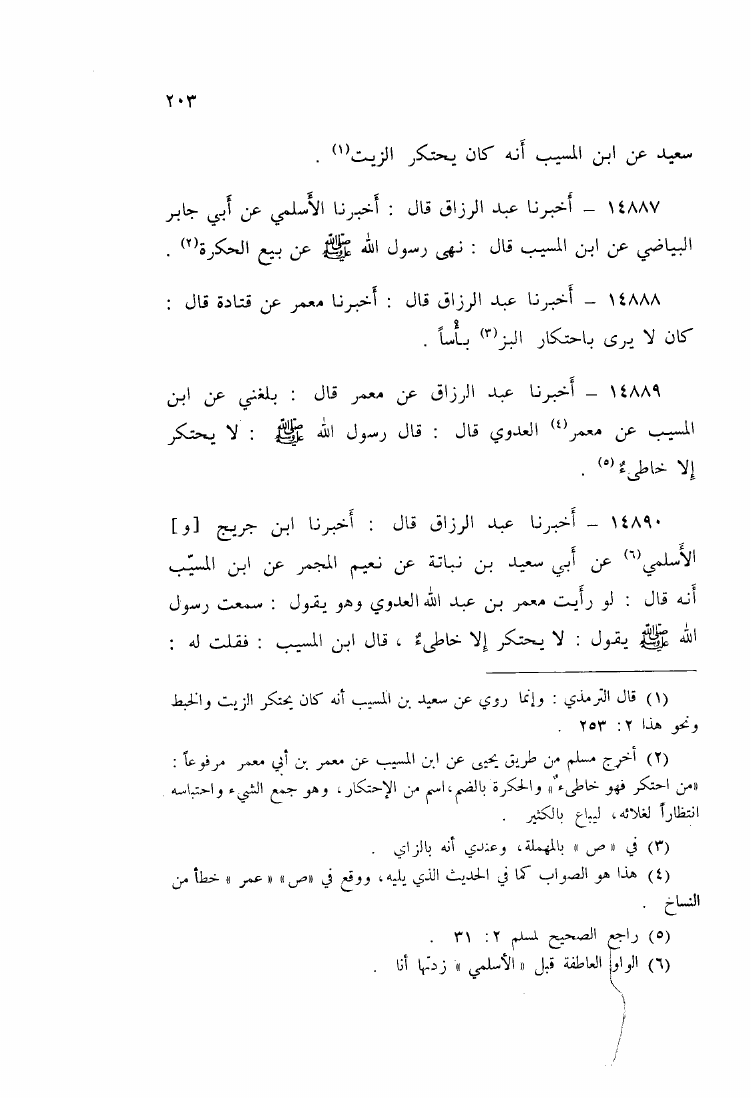 ٢٠٣
سعيد عن ابن المسيب أنه كان يحتكر الزيت(١) .
١٤٨٨٧ – أخبرنا عبد الرزاق قال : أخبرنا الأسلمي عن أبي جابر
البياضي عن ابن المسيب قال : نهى رسول الله ﷺ عن بيع الحكرة(٢) .
١٤٨٨٨ – أخبرنا عبد الرزاق قال : أخبرنا معمر عن قتادة قال :
كان لا يرى باحتكار البز(٣) بأساً .
١٤٨٨٩ – أخبرنا عبد الرزاق عن معمر قال : بلغني عن ابن
المسيب عن معمر(٤) العدوي قال : قال رسول الله ﷺ : لا يحتكر
إلا خاطىءٌ(٥) .
١٤٨٩٠ – أخبرنا عبد الرزاق قال : أخبرنا ابن جريج [و]
الأسلمي(٦) عن أبي سعيد بن نباتة عن نعيم المجمر عن ابن المسيّب
أنه قال : لو رأيت معمر بن عبد الله العدوي وهو يقول : سمعت رسول
الله ﷺ يقول : لا يحتكر إلا خاطىءٌ ، قال ابن المسيب : فقلت له :
(١) قال الترمذي : وإنما روي عن سعيد بن المسيب أنه كان يحتكر الزيت والخبط
ونحو هذا ٢: ٢٥٣ .
(٢) أخرج مسلم من طريق يحيى عن ابن المسيب عن معمر بن أبي معمر مرفوعاً :
«من احتكر فهو خاطىءٌ» والحكرة بالضم، اسم من الإحتكار، وهو جمع الشيء واحتباسه
انتظاراً لغلائه، ليباع بالكثير .
(٣) في « ص » بالمهملة، وعندي أنه بالزاي .
(٤) هذا هو الصواب كما في الحديث الذي يليه، ووقع في «ص» « عمر » خطأ من
النساخ .
(٥) راجع الصحيح لمسلم ٢: ٣١ .
(٦) الواو العاطفة قبل « الأسلمي » زدتها أنا .